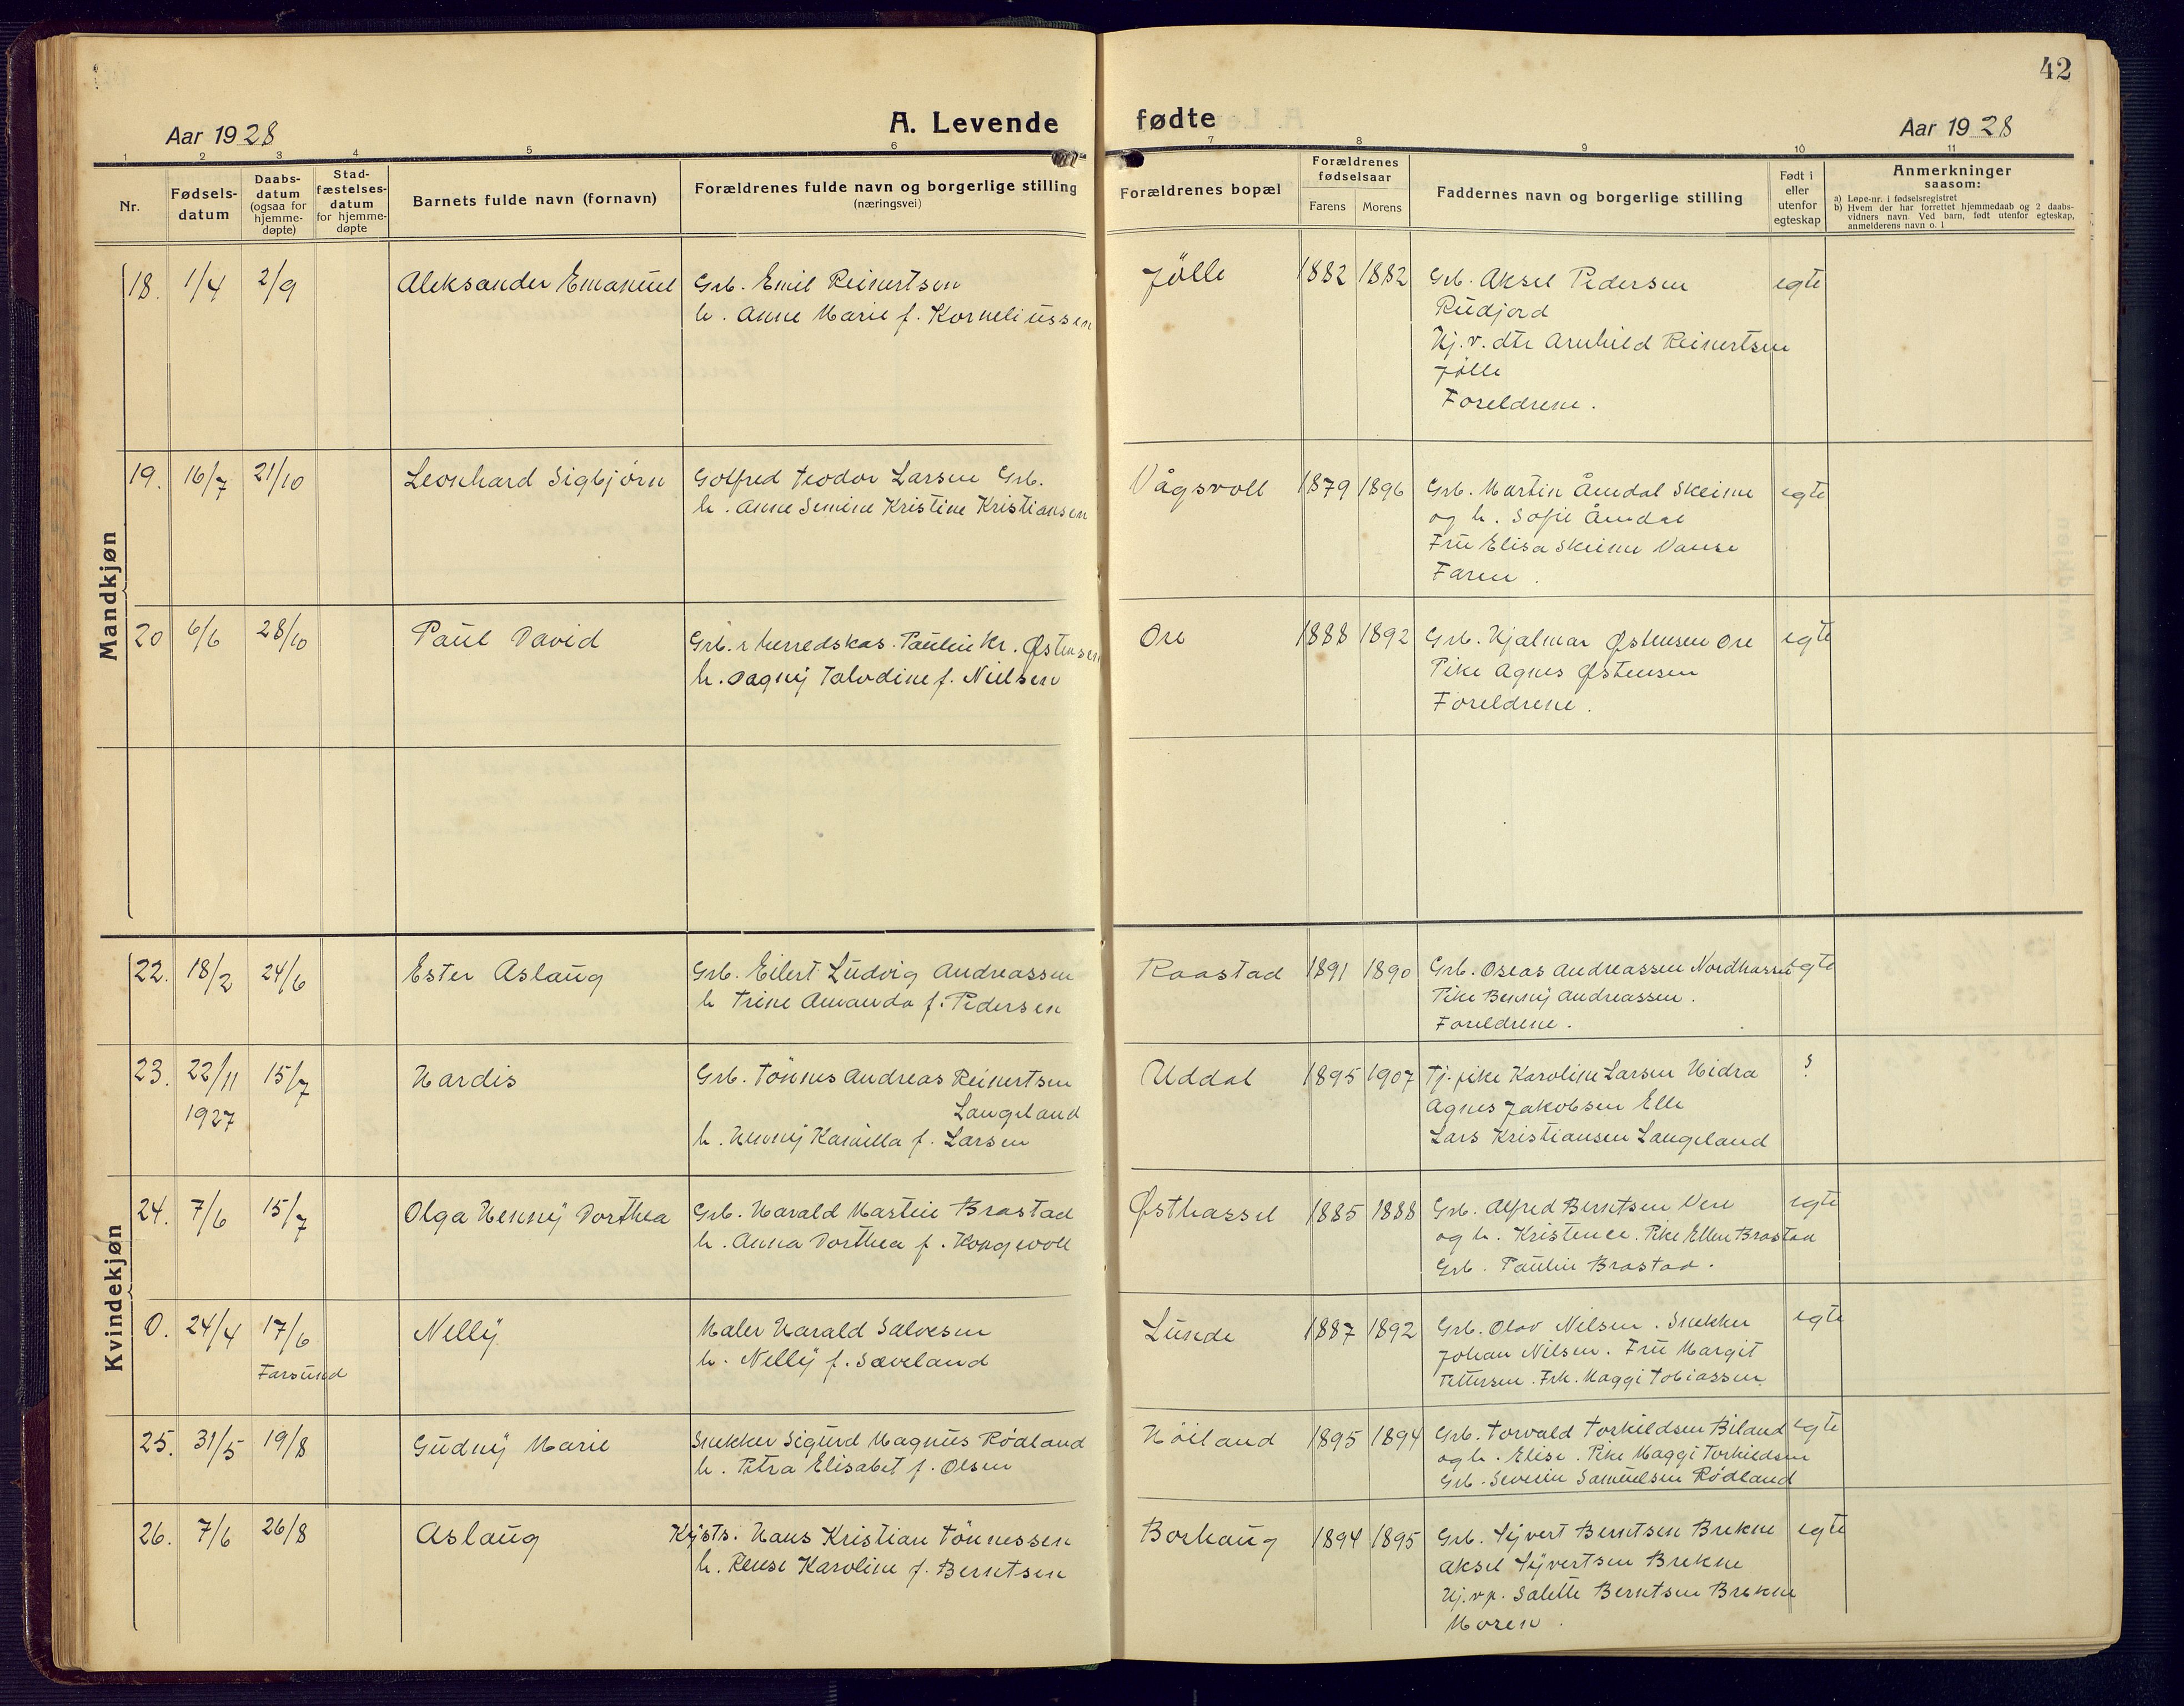 42
A. Levende fødte
Aar 1928
Aar 1928
1 2 3 4 5 6 7 8 9 10 11
Nr.
Fødsels-
datum
Daabs-
datum
(ogsaa for
hjemme-
døpte)
Stad-
fæstelses-
datum
for hjemme-
døpte
Barnets fulde navn (fornavn)
Forældrenes fulde navn og borgerlige stilling
(næringsvei)
Forældrenes bopæl
Forældrenes
fødselsaar
Farens Morens
Faddernes navn og borgerlige stilling
Født i
eller
utenfor
egteskap
Anmerkninger
saasom:
a) Løpe-nr. i fødselsregistret
b) Hvem der har forrettet hjemmedaab og 2 daabs-
vidners navn. Ved barn, født utenfor egteskap,
anmelderens navn o. l
Mandkjøn
18. 1/4 2/9 Aleksander Emanuel
Grb. Emil Reinertsen
h. Anne Marie f. Korneliussen
Jölle 1882 1882
Grb. Aksel Pedersen
Rudjord
Hj.v. dtr Arnhild Reinertsen
Jölle
Foreldrene.
egte
19. 16/7 21/10 Leonhard Sigbjørn
Golfred Teodor Larsen Grb.
h. Anne Semine Kristine Kristiansen
Vågsvoll 1879 1896
Grb. Martin Åmdal Skeime
og h. Sofie Åmdal
Fru Elisa Skeime Vanse
Faren.
egte
20 6/6 28/10 Paul David
Grb. & herredskas. Paulin Kr. Østensen
h. Dagny Tolvdine f. Nielsen
Ore 1888 1892
Grb. Hjalmar Østensen Ore
Pike Agnes Østensen
Foreldrene.
egte
Kvindekjøn
22. 18/2 24/6 Ester Aslaug
Grb. Eilert Ludvig Andreassen
h Trine Amanda f. Pedersen
Raastad 1891 1890
Grb. Oseas Andreassen Nordhassel
Pike Benny Andreassen.
Foreldrene.
egte
23. 22/11 1927 15/7 Hardis
Grb. Tönnes Andreas Reinertsen
Langeland
h. Henny Kamilla f. Larsen
Uddal 1895 1907
Tj. pike Karoline Larsen Hidra
Agnes Jakobsen Elle
Lars Kristiansen Langeland
?
24. 7/6 15/7 Olga Henny Dorthea
Grb. Harald Martin Brastad
h. Anna Dorthea f. Kongevoll
Østhassel 1885 1888
Grb. Alfred Berntsen Vere
og h. Kristence. Pike Ellen Brastad
Grb. Paulin Brastad.
egte
0. 24/4 17/6 Farsund Nelly
Maler Harald Salvesen
h. Nelly f. Sæveland
Lunde 1887 1892
Grb. Olav Nilsen. Snekker
Johan Nilsen. Fru Margit
Pettersen. Frk. Maggi Tobiassen
egte
25. 31/5 19/8 Gudny Marie
Snekker Sigurd Magnus Rødland
h. Petra Elisabet f. Olsen
Höiland 1895 1894
Grb. Torvald Torkildsen Biland
og h. Elise. Pike Maggi Torkildsen
Grb. Severin Samuelsen Rødland
egte
26. 7/6 26/8 Aslaug
Kysts. Hans Kristian Tönnessen
h. Rense Karoline f. Berntsen
Borhaug 1894 1895
Grb. Syvert Berntsen Brekne
Aksel Syvertsen Brekne
Hj.v.p. Salette Berntsen Brekne
Moren.
egte